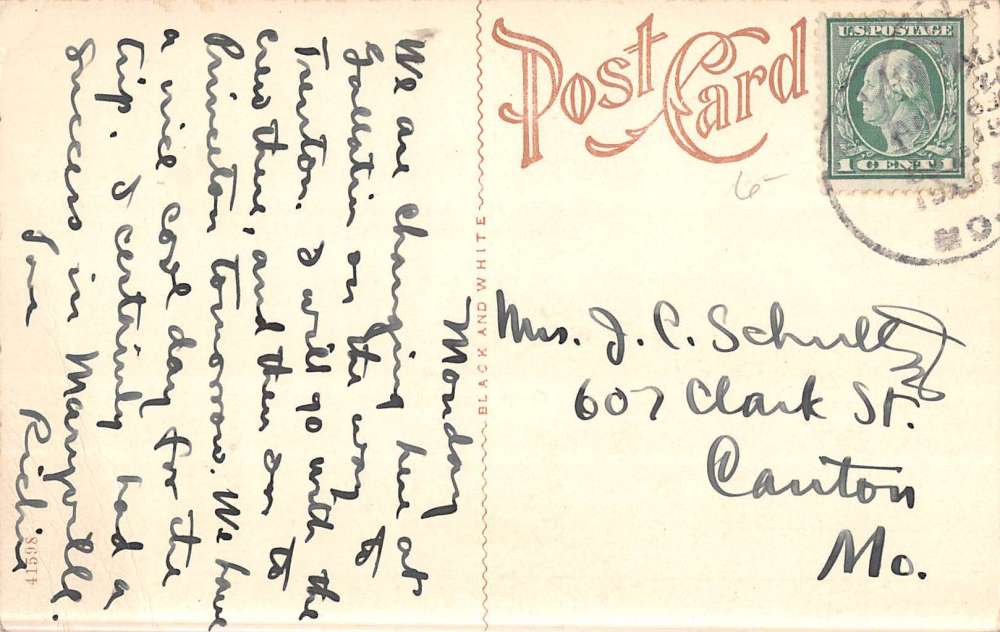 Post Card
U.S. POSTAGE
1 CENT 1
6-
BLACK AND WHITE
Monday
We are changing here at
Gallatin on the way to
Trenton. I will go with the
crew there, and then on to
Princeton tomorrow. We have
a nice cool day for the
trip. I certainly had a
success in Maryville.
Your Richie
Mrs. J. C. Schultz
607 Clark St.
Canton
Mo.
41598